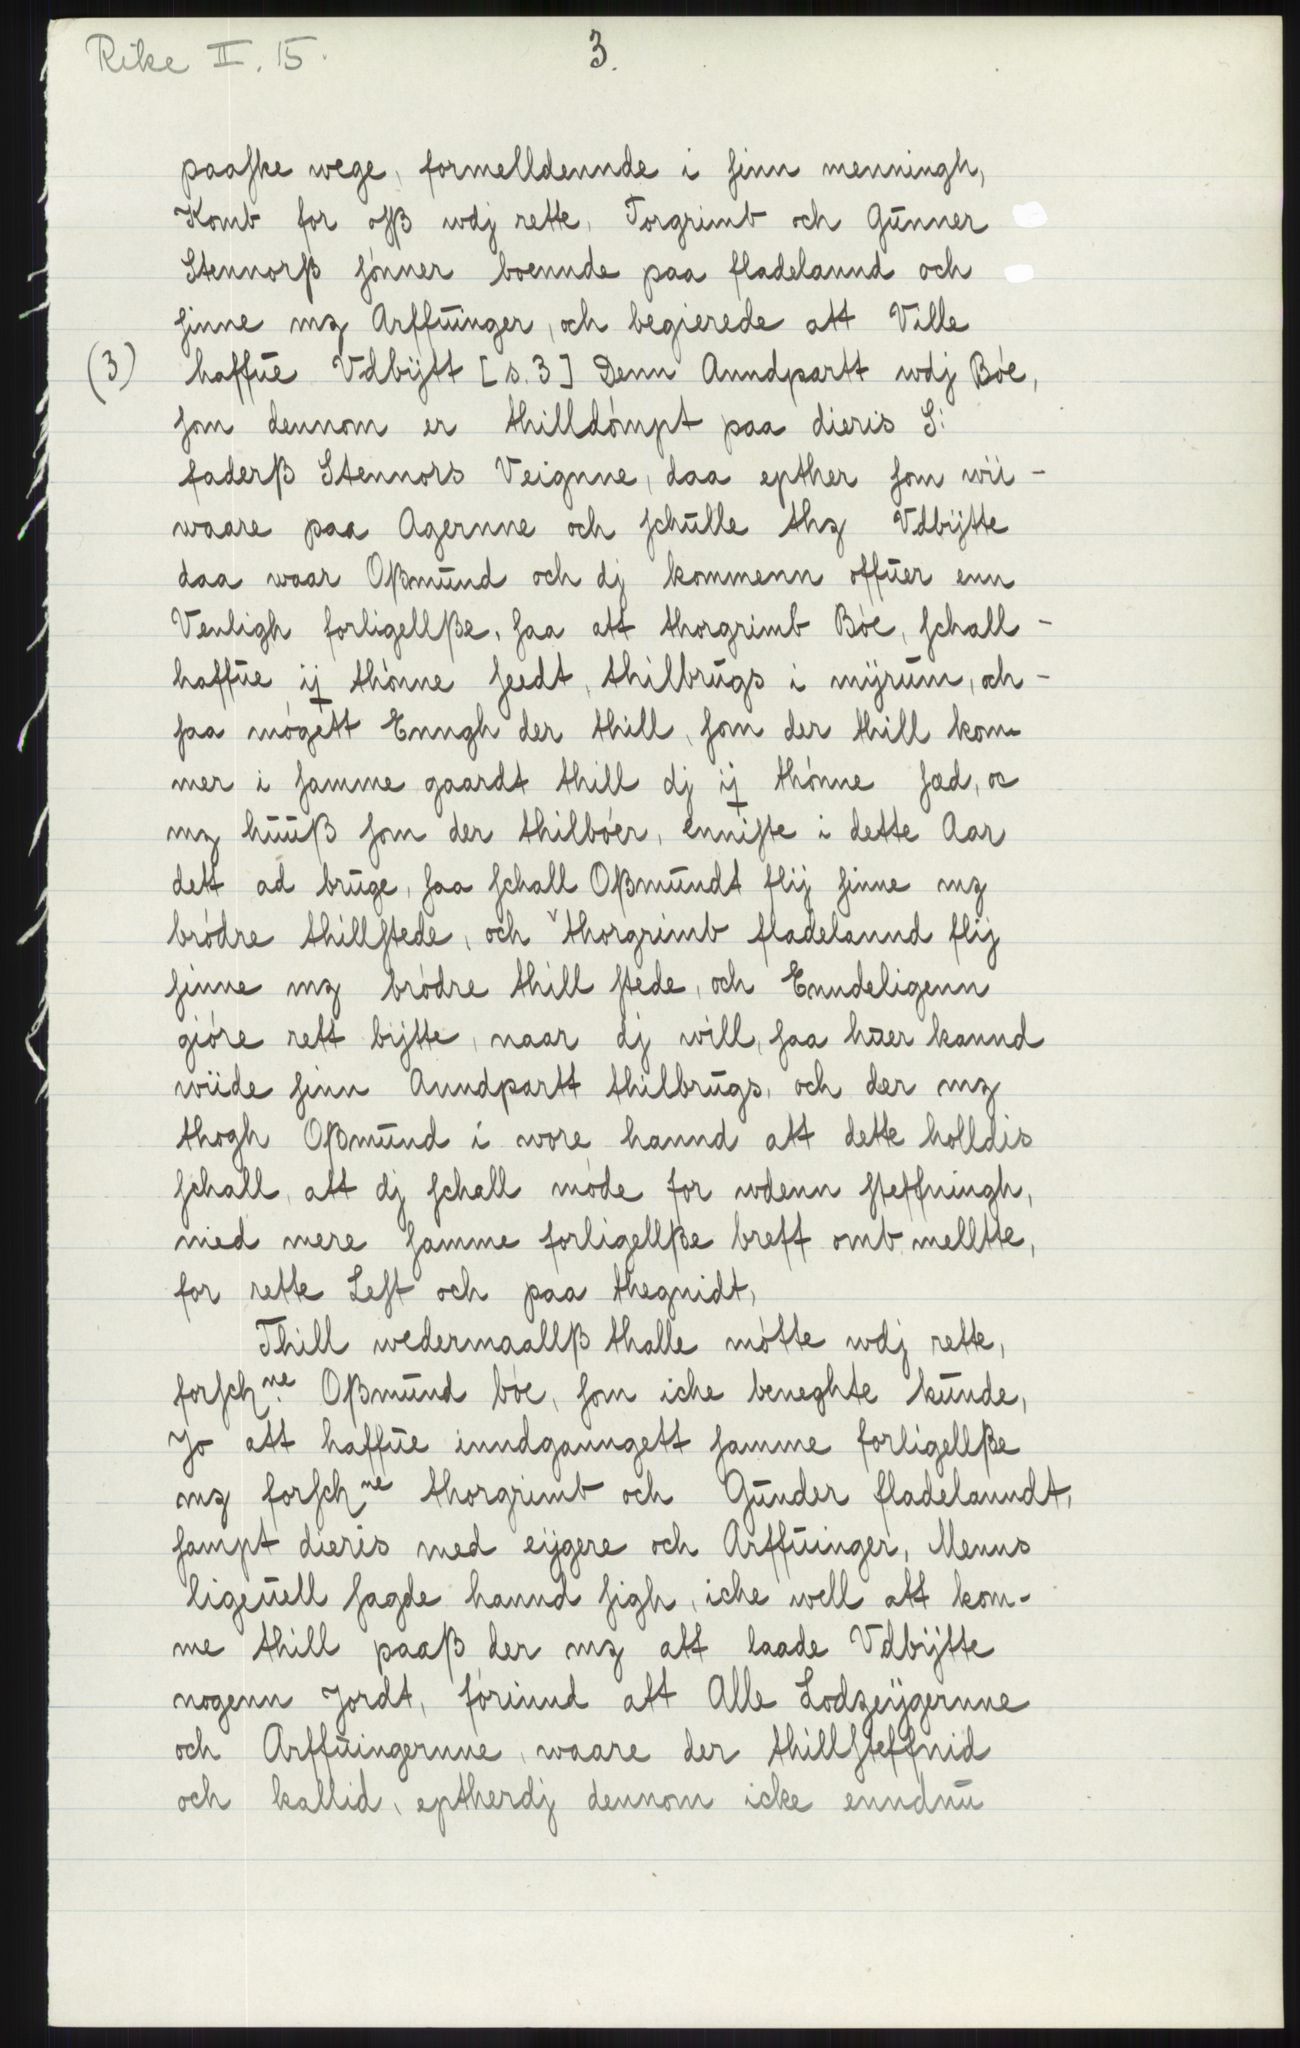 Rike II. 15.
3.
paaske wege, formelldennde i sinn menningh,
Komb for oss wdj rette, Torgrimb och Gunner
Stennorß sónner boennde paa fladelannd och
sinne mz Arffuinger, och begierede att Ville
(3) haffue Vdbÿtt [s. 3] Denn Anndpartt wdj Bóe,
som dennom er thilldómpt paa dieris S:
faderß Stennors Veignne, daa epther som wii -
waare paa Agernne och schulle thz Vdbÿtte
daa waar Oßmund och dj kommenn offuer enn
Venligh forligellße, saa att thorgrimb Bóe, schall -
haffue ij thónne seedt, thilbrugs i mÿrum, och -
saa mógett Enngh der thill, som der thill kom-
mer i samme gaardt thill dj ij thónne sæd, oc
mz huuß som der thilbóer, enniste i dette Aar
dett ad bruge, saa schall Oßmundt flij sinne mz
bródre thillstede, och thorgrimb fladelannd flij
sinne mz bródre thill stede, och Enndeligenn
gióre rett bÿtte, naar dj will, saa huer kannd
wiide sinn Anndpartt thilbrugs, och der mz
thogh Oßmund i wore hannd att dette holldis
schall, att dj schall móde for wdenn steffningh,
med mere samme forligellße breff omb melltte,
for rette Lest och paa thegnidt,
Thill wedermaallß thalle mótte wdj rette,
forschne Oßmund bóe, som iche beneghte kunde,
Jo att haffue inndganngett samme forligellße
mz forschne thorgrimb och Gunder fladelanndt,
sampt dieris med eÿgere och Arffuinger, Menns
ligeuell sagde hannd sigh, iche well att kom-
me thill paaß der mz att laade Vdbÿtte
nogenn Jordt, fórinnd att Alle Lodzeÿgernne
och Arffuingernne, waare der thillsteffnid
och kallid, eptherdj dennom icke enndnu